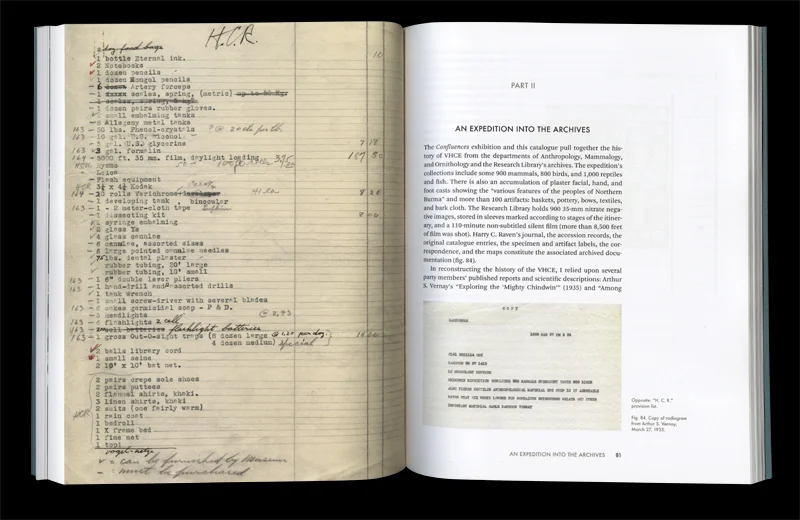 H.C.R.
2 dog food bags
1 bottle Eternal ink.
2 Notebooks
1 dozen pencils
1 dozen Mongol pencils
6 dozen Artery forceps
scales, spring, (metric) up to 50 Kg.
1 scales, spring, 5 kg.
1 dozen pairs rubber gloves.
small embalming tanks
5 Allegany metal tanks
163 - 50 lbs. Phenol-crystals
163 - 10 gal. U.S.
3 gal. U.S. glycerine 7 18
163 3 gal. formalin
164 - 5000 ft. 35 mm. film, daylight loading 187 50
Leica
Flash equipment
3¼ x 4¼ Kodak
20 rolls Verichrome 8 20
1 developing tank, binocular
163 - 1 - 2 meter-cloth tape
1 dissecting kit
syringe embalming
2 glass Ys
4 glass cannulae
6 cannulae, assorted sizes
6 large pointed cannulae needles
lbs. dental plaster
rubber tubing, 20' large
rubber tubing, 10' small
1 6" double lever pliers
163 - 1 hand-drill and assorted drills
1 tank wrench
1 small screw-driver with several blades
163 - 6 cakes germicidal soap - P & D.
3 headlights
163 - 6 flashlights 2 cell
small batteries flashlight batteries
163 - 1 gross Out-O-Sight traps (8 dozen large @ 1.20 per doz.
4 dozen medium) special
2 balls library cord
1 small seine
2 10' x 10' bat net.
2 pairs crepe sole shoes
2 pairs puttees
2 flannel shirts, khaki.
3 linen shirts, khaki
2 suits (one fairly warm)
1 rain coat
1 bedroll
1 X frame bed
1 fine net
1 topi
✓ = can be furnished by Museum
- : must be purchased
PART II
AN EXPEDITION INTO THE ARCHIVES
The Confluences exhibition and this catalogue pull together the his-
tory of VHCE from the departments of Anthropology, Mammalogy,
and Ornithology and the Research Library's archives. The expedition's
collections include some 900 mammals, 800 birds, and 1,000 reptiles
and fish. There is also an accumulation of plaster facial, hand, and
foot casts showing the "various features of the peoples of Northern
Burma" and more than 100 artifacts: baskets, pottery, bows, textiles,
and bark cloth. The Research Library holds 900 35-mm nitrate nega-
tive images, stored in sleeves marked according to stages of the itiner-
ary, and a 110-minute non-subtitled silent film (more than 8,500 feet
of film was shot). Harry C. Raven's journal, the accession records, the
original catalogue entries, the specimen and artifact labels, the cor-
respondence, and the maps constitute the associated archived docu-
mentation (fig. 84).
In reconstructing the history of the VHCE, I relied upon several
party members' published reports and scientific descriptions: Arthur
S. Vernay's "Exploring the 'Mighty Chindwin'" (1935) and "Among
COPY
Opposite: "H. C. R."
provision list.
Fig. 84. Copy of radiogram
from Arthur S. Vernay,
March 27, 1935.
AN EXPEDITION INTO THE ARCHIVES 81